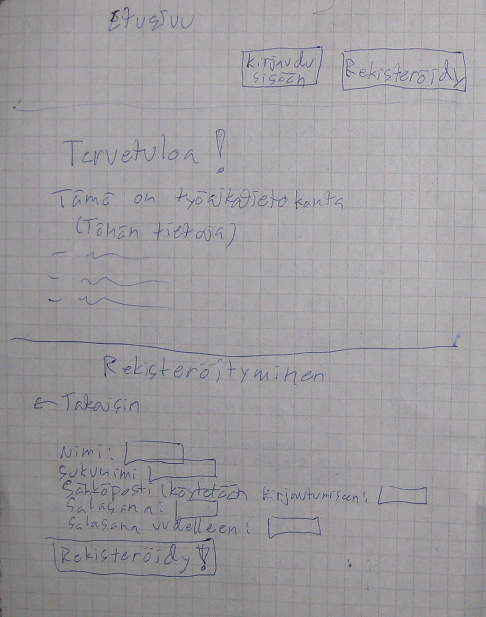 Etusivu
Kirjaudu
sisään
Rekisteröidy
Tervetuloa!
Tämä on työaikatietokanta
(Tähän tietoja)
Rekisteröityminen
← Takaisin
Nimi:
Sukunimi
Sähköposti (käytetään kirjautumiseen:
Salasana:
Salasana uudelleen:
Rekisteröidy!